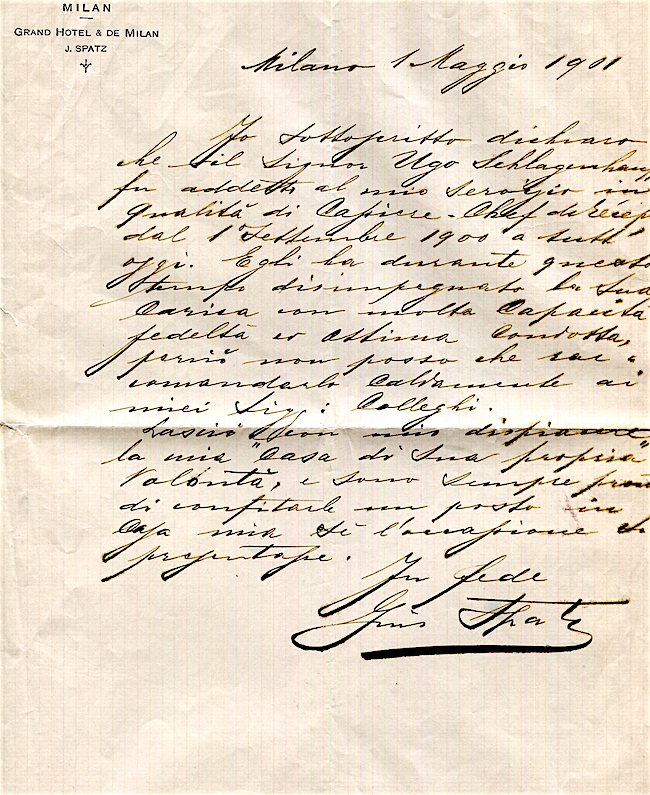 MILAN
GRAND HOTEL & DE MILAN
J. SPATZ
Milano 1 Maggio 1901
Io sottoscritto dichiaro
che il Signor Ugo Schlagenhau
fu addetto al mio servizio in
qualità di Caissier - Chef de récep
dal 1 Settembre 1900 a tutt'
oggi. Egli ha durante questo
tempo disimpegnato la Sua
Carica con molta Capacità
fedeltà ed ottima Condotta,
perciò non posso che rac"
comandarlo Caldamente ai
miei Sig: Colleghi.
Lasciò con mio dispiacere
la mia Casa di Sua propria
Volontà, e sono sempre
di un posto in
Casa mia se l'occasione si
presentasse.
In fede
Gius Spatz